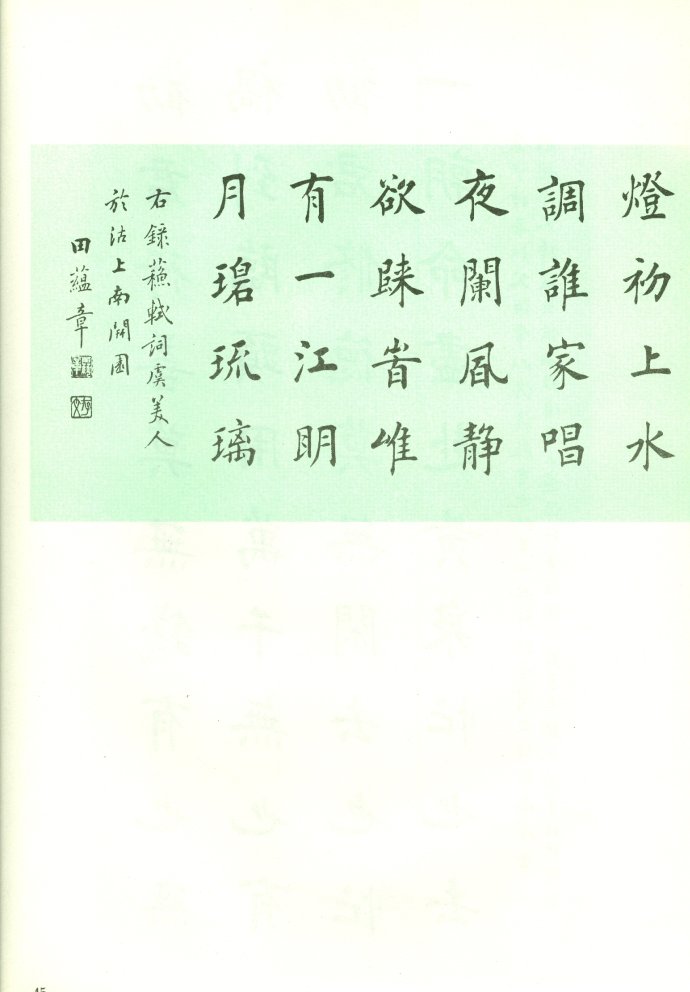 燈初上水
調誰家唱
夜闌風静
欲歸昔惟
有一江明
月碧琉璃
右録蘇軾詞虞美人
於沽上南開園
田蘊章
45